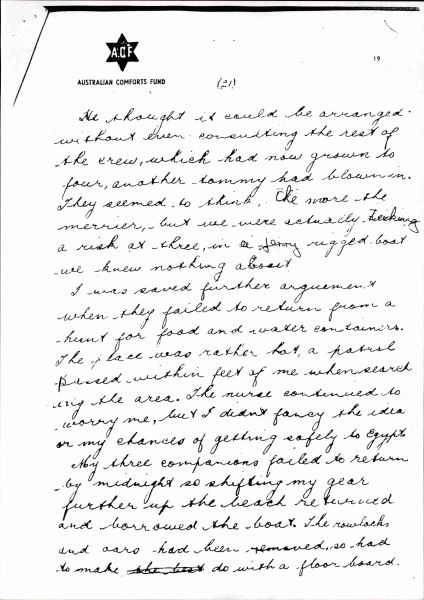 A.C.F
19
AUSTRALIAN COMFORTS FUND
(21)
He thought it could be arranged
without even consulting the rest of
the crew, which had now grown to
four, another tommy had blown in.
They seemed to think, the more the
merrier, but we were actually taking
a risk at three, in a jerry rigged boat
we knew nothing about
I was saved further arguement
when they failed to return from a
hunt for food and water containers.
The place was rather hot, a patrol
passed within feet of me when search
ing the area. The nurse continued to
worry me, but I didn't fancy the idea
or my chances of getting safely to Egypt
My three companions failed to return
by midnight so shifting my gear
further up the beach returned
and borrowed the boat. The rowlocks
and oars had been removed, so had
to make the best do with a floor board.